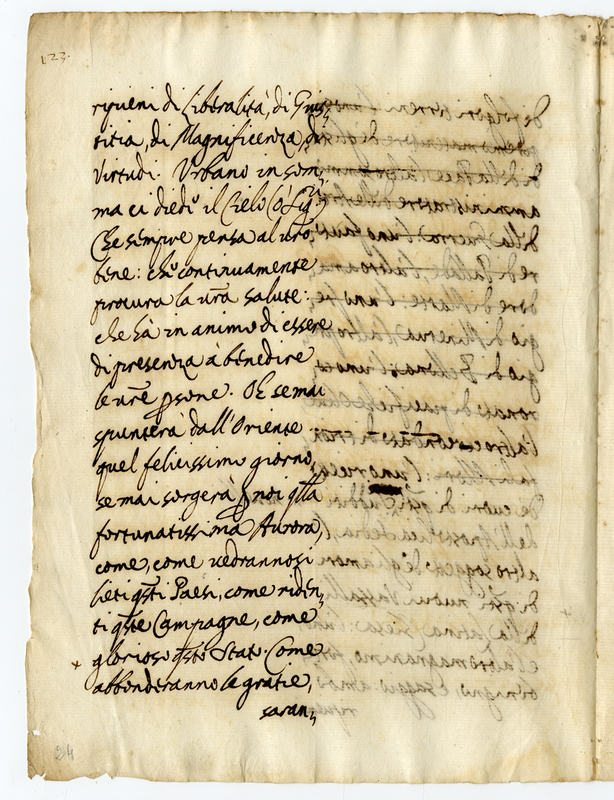 123.
ripieni di Liberalità, di Gius,,
titia, di Magnificenza, di
Virtudi. Vrbano in som,,
ma ci diede il Cielo (ò Sig.ri)
Che sempre pensa al uro
bene: che continuamente
procura la ura salute:
che hà in animo di essere
di presenza à benedire
le ure psone. Oh se mai
spunterà dall'Oriente
quel felicissimo giorno,
se mai sorgerà p noi qlla
fortunatissima Aurora,
come, come uedrannosi
lieti qsti Paesi, come riden,,
ti qste Campagne, come
glorioso qsto Stato. Come
abbonderanno le gratie,
saran,,
24